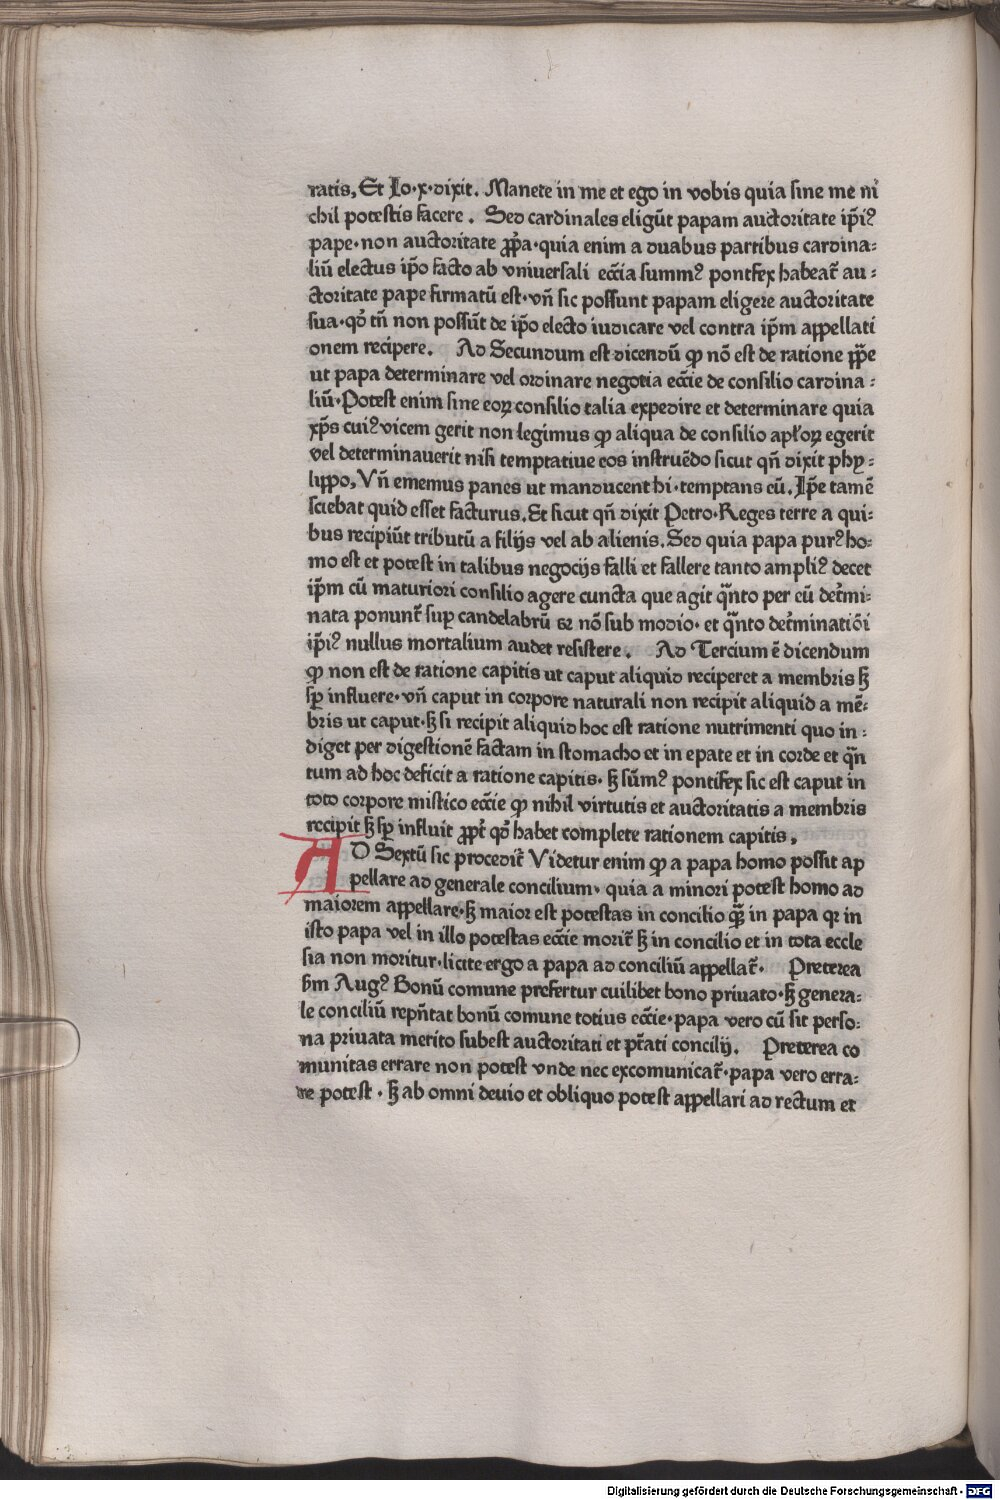 ratis, Et Io·x·dixit. Manete in me et ego in vobis quia sine me ni
chil potestis facere. Sed cardinales eligūt papam auctoritate ip̄iꝰ
pape·non auctoritate ꝓp̄a·quia enim a duabus partibus cardina⸗
liū electus ip̄o facto ab vniuersali ecc̄ia summꝰ pontifex habeat᷑ au⸗
ctoritate pape firmatū est·vn̄ sic possunt papam eligere auctoritate
sua·qd̄ tn̄ non possūt de ip̄o electo iudicare vel contra ip̄m appellati
onem recipere. Ad Secundum est dicendū ꝙ nō est de ratione ꝓp̄e
ut papa determinare vel ordinare negotia ecc̄ie de consilio cardina⸗
liū·Potest enim sine eoꝝ consilio talia expedire et determinare quia
xp̄s cuiꝰ vicem gerit non legimus ꝙ aliqua de consilio apl̄oꝝ egerit
vel determinauerit nisi temptatiue eos instruēdo sicut qn̄ dixit phy⸗
lippo, Vn̄ ememus panes ut manducent hi·temptans eū. Ip̄e tamē
sciebat quid esset facturus. Et sicut qn̄ dixit Petro·Reges terre a qui⸗
bus recipiūt tributū a filijs vel ab alienis. Sed quia papa purꝰ ho⸗
mo est et potest in talibus negocijs falli et fallere tanto ampliꝰ decet
ip̄m cū maturiori consilio agere cuncta que agit qn̄to per eū det᷑mi⸗
nata ponunt᷑ suꝑ candelabrū ⁊ nō sub modio· et qn̄to det᷑minatiōi
ip̄iꝰ nullus mortalium audet resistere. Ad Tercium ē dicendum
ꝙ non est de ratione capitis ut caput aliquid reciperet a membris ꝫ
sp̄ influere·vn̄ caput in corpore naturali non recipit aliquid a mē⸗
bris ut caput·ꝫ si recipit aliquid hoc est ratione nutrimenti quo in⸗
diget per digestionē factam in stomacho et in epate et in corde et qn̄
tum ad hoc deficit a ratione capitis· ꝫ sūmꝰ pontifex sic est caput in
toto corpore mistico ecc̄ie ꝙ nihil virtutis et auctoritatis a membris
recipit ꝫ sp̄ influit ꝓpt᷑ qd̄ habet complete rationem capitis,
AD Sextū sic procedit᷑ Videtur enim ꝙ a papa homo possit ap
pellare ad generale concilium· quia a minori potest homo ad
maiorem appellare·ꝫ maior est potestas in concilio q̄ꝫ in papa qꝛ in
isto papa vel in illo potestas ecc̄ie morit᷑ ꝫ in concilio et in tota eccle
sia non moritur·licite ergo a papa ad conciliū appellat᷑· Preterea
s̄m Augꝰ Bonū comune prefertur cuilibet bono priuato·ꝫ genera⸗
le conciliū repn̄tat bonū comune totius ecc̄ie·papa vero cū sit perso⸗
na priuata merito subest auctoritati et pt᷑ati concilij. Preterea co
munitas errare non potest vnde nec excomunicat᷑·papa vero erra⸗
re potest · ꝫ ab omni deuio et obliquo potest appellari ad rectum et
Digitalisierung gefördert durch die Deutsche Forschungsgemeinschaft · DFG